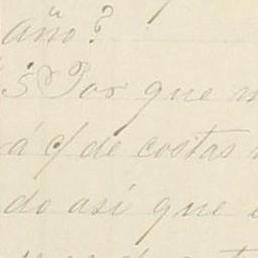 año?
¿Por que
á cf de costas
do así que